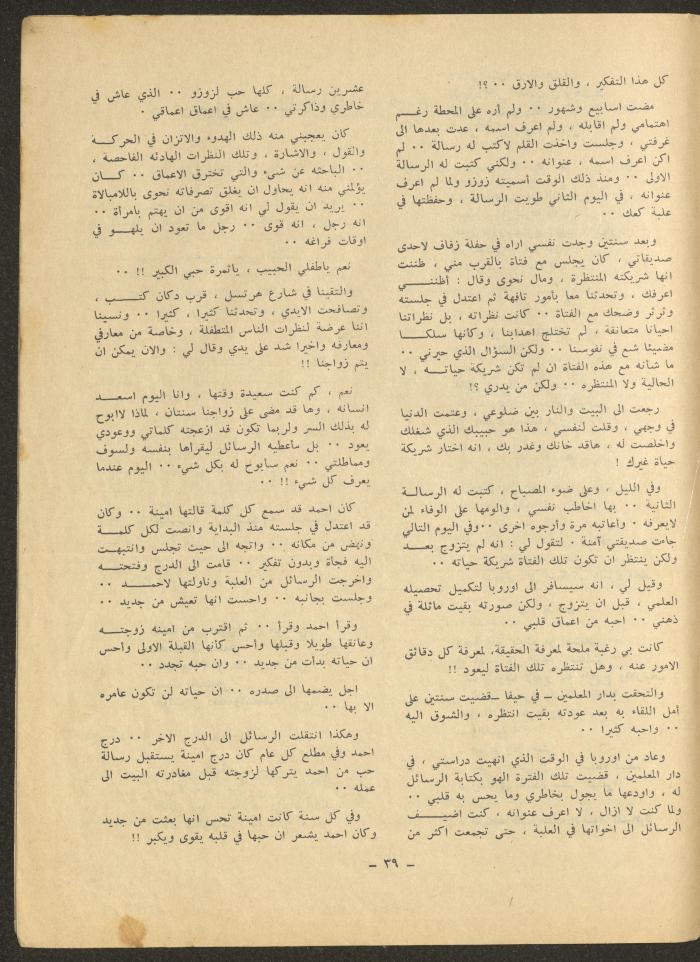 كل هذا التفكير ، والقلق والارق ٠٠ ؟!
مضت اسابيع وشهور ٠٠ ولم أره على المحطة رغم
اهتمامي ولم اقابله ، ولم اعرف اسمه ، عدت بعدها الى
غرفتي ، وجلست واخذت القلم لاكتب له رسالة ٠٠ لم
اكن اعرف اسمه ، عنوانه ٠٠ ولكني كتبت له الرسالة
الاولى ٠٠ ومنذ ذلك الوقت أسميته زوزو ولما لم اعرف
عنوانه ، في اليوم الثاني طويت الرسالة ، وحفظتها في
علبة كعك ٠٠
وبعد سنتين وجدت نفسي اراه في حفلة زفاف لاحدى
صديقاتي ، كان يجلس مع فتاة بالقرب مني ، ظننت
انها شريكته المنتظرة ، ومال نحوى وقال : أظنني
اعرفك ، وتحدثنا معا بأمور تافهة ثم اعتدل في جلسته
وثرثر وضحك مع الفتاة ٠٠ كانت نظراته ، بل نظراتنا
احيانا متعانقة ، لم تختلج اهدابنا ، وكأنها سلكا
مضيئا شع في نفوسنا ٠٠ ولكن السؤال الذي حيرني ٠٠
ما شأنه مع هذه الفتاة ان لم تكن شريكة حياته ، لا
الحالية ولا المنتظره ٠٠ ولكن من يدري ؟!
رجعت الى البيت والنار بين ضلوعي ، وعتمت الدنيا
في وجهي ، وقلت لنفسي ، هذا هو حبيبك الذي شغلك
واخلصت له ، هاقد خانك وغدر بك ، انه اختار شريكة
حياة غيرك !
وفي الليل ، وعلى ضوء المصباح ، كتبت له الرسالة
الثانية ٠٠ بها اخاطب نفسي ، والومها على الوفاء لمن
لايعرفه ٠ وأعاتبه مرة وأرجوه اخرى ٠٠ وفي اليوم التالي
جاءت صديقتي آمنة ٠ لتقول لي : انه لم يتزوج بعد
ولكن ينتظر ان تكون تلك الفتاة شريكة حياته ٠٠
وقيل لي ، انه سيسافر الى اوروبا لتكميل تحصيله
العلمي ، قبل ان يتزوج ، ولكن صورته بقيت ماثلة في
ذهني ٠٠ احبه من اعماق قلبي ٠٠
كانت بي رغبة ملحة لمعرفة الحقيقة، لمعرفة كل دقائق
الامور عنه ، وهل تنتظره تلك الفتاة ليعود !!
والتحقت بدار المعلمين ــ في حيفا ــ قضيت سنتين على
أمل اللقاء به بعد عودته بقيت انتظره ، والشوق اليه
٠٠ واحبه كثيرا ٠٠
وعاد من اوروبا في الوقت الذي انهيت دراستي ، في
دار المعلمين ، قضيت تلك الفترة الهو بكتابة الرسائل
له ، واودعها ما يجول بخاطري وما يحس به قلبي ٠٠
ولما كنت لا ازال ، لا اعرف عنوانه ، كنت اضيف
الرسائل الى اخواتها في العلبة ، حتى تجمعت اكثر من
عشرين رسالة ، كلها حب لزوزو ٠٠ الذي عاش في
خاطري وذاكرتي ٠٠ عاش في اعماق اعماقي ٠
كان يعجبني منه ذلك الهدوء والاتزان في الحركة
والقول ، والاشارة ، وتلك النظرات الهادئه الفاحصة ،
٠٠ الباحثه عن شيء والتي تخترق الاعماق ٠٠ كان
يؤلمني منه انه يحاول ان يغلق تصرفاته نحوى باللامبالاة
٠٠ يريد ان يقول لي انه اقوى من ان يهتم بامرأة ٠٠
انه رجل ، انه قوى ٠٠ رجل ما تعود ان يلهو في
اوقات فراغه ٠٠
نعم ياطفلي الحبيب ، ياثمرة حبي الكبير !! ٠٠
والتقينا في شارع هرتسل ، قرب دكان كتب ،
وتصافحت الايدي ، وتحدثنا كثيرا ، كثيرا ٠٠ ونسينا
اننا عرضة لنظرات الناس المتطفلة ، وخاصة من معارفي
ومعارفه واخيرا شد على يدي وقال لي : والان يمكن ان
يتم زواجنا !!
نعم ، كم كنت سعيدة وقتها ، وانا اليوم اسعد
انسانه ، وها قد مضى على زواجنا سنتان ، لماذا لاابوح
له بذلك السر ولربما تكون قد ازعجته كلماتي ووعودي
يعود ٠٠ بل سأعطيه الرسائل ليقرأها بنفسه ولسوف
ومماطلتي ٠٠ نعم سابوح له بكل شيء ٠٠ اليوم عندما
يعرف كل شيء !! ٠٠
كان احمد قد سمع كل كلمة قالتها امينة ٠٠ وكان
قد اعتدل في جلسته منذ البداية وانصت لكل كلمة
ونهض من مكانه ٠٠ واتجه الى حيث تجلس وانتبهت
اليه فجأة وبدون تفكير ٠٠ قامت الى الدرج وفتحته
واخرجت الرسائل من العلبة وناولتها لاحمد ٠٠
وجلست بجانبه ٠٠ واحست انها تعيش من جديد ٠٠
وقرأ احمد وقرأ ٠٠ ثم اقترب من امينه زوجته
وعانقها طويلا وقبلها وأحس كأنها القبلة الاولى وأحس
ان حياته بدأت من جديد ٠٠ وان حبه تجدد ٠٠
اجل يضمها الى صدره ٠٠ ان حياته لن تكون عامره
الا بها ٠٠
وهكذا انتقلت الرسائل الى الدرج الاخر ٠٠ درج
احمد وفي مطلع كل عام كان درج امينة يستقبل رسالة
حب من احمد يتركها لزوجته قبل مغادرته البيت الى
عمله ٠٠
وفي كل سنة كانت امينة تحس انها بعثت من جديد
وكان احمد يشعر ان حبها في قلبه يقوى ويكبر !!
ــ ٣٩ ــ